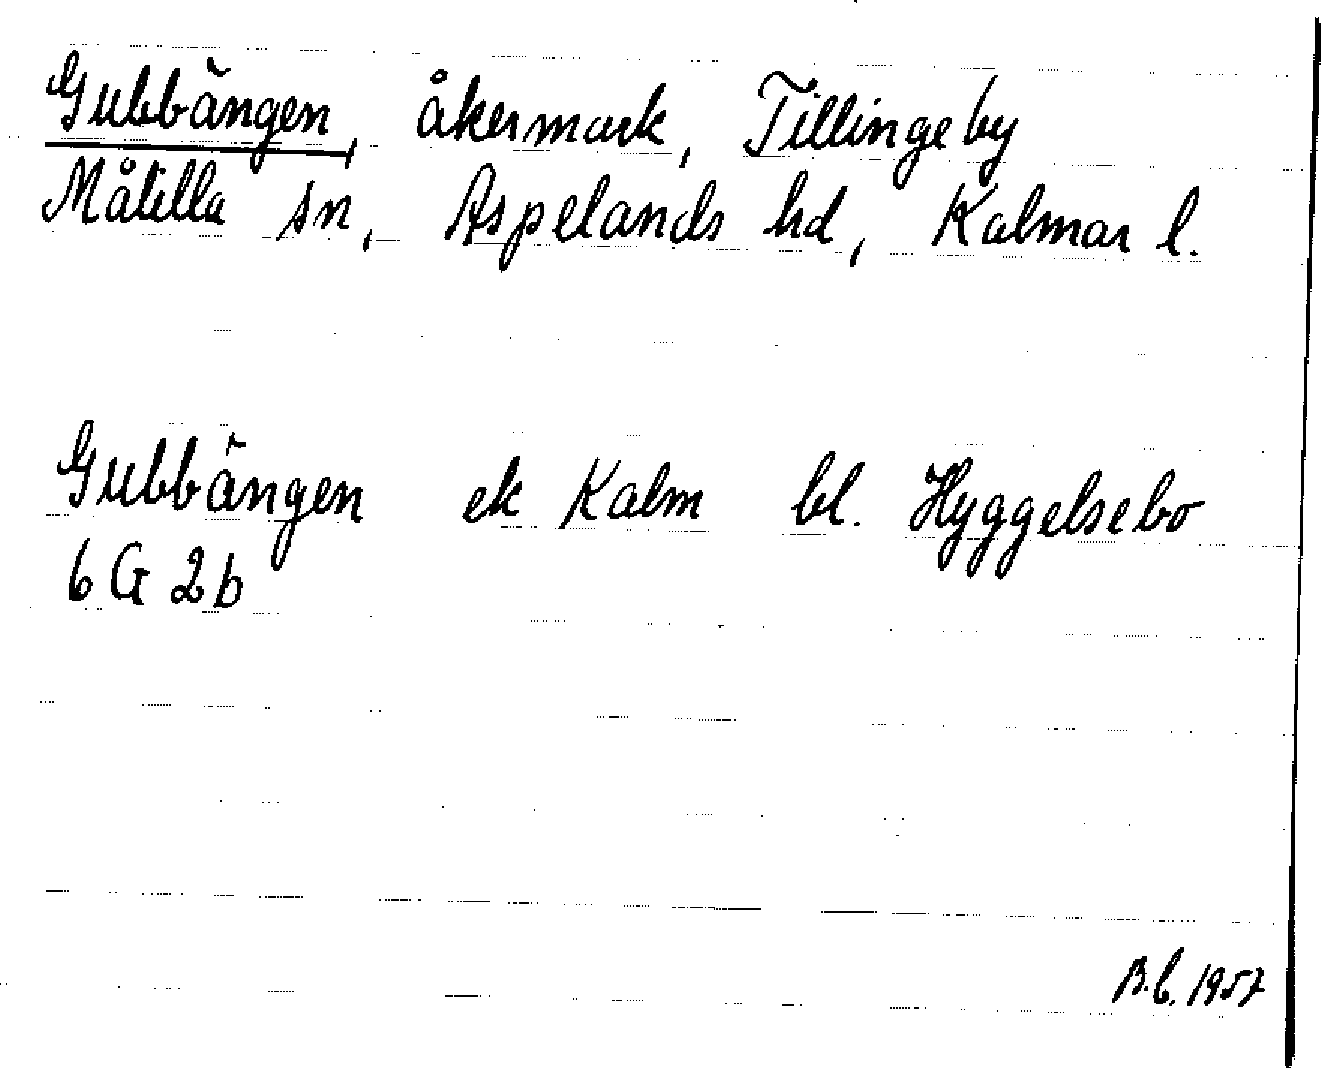 Gubbängen, åkermark, Tillingeby
Målilla sn, Aspelands hd, Kalmar l.
Gubbängen ek Kalm bl. Hyggelsebo
6 G 2b
B.b. 1957